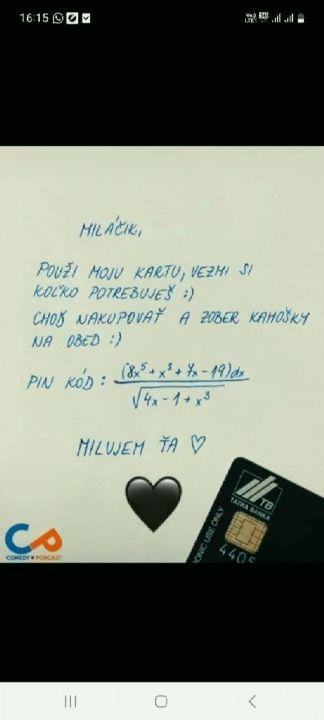 16:15
MILÁČIK,
POUŽI MOJU KARTU, VEZMI SI
KOĽKO POTREBUJEŠ :)
CHOĎ NAKUPOVAŤ A ZOBER KAMOŠKY
NA OBED :)
PIN KÓD: (8x⁵ + x³ + 7x - 19)dx
√4x - 1 + x³
MILUJEM ŤA ♡
CP
COMEDY PODCAST
TB
TATRA BANKA
ONIC USE ONLY
4405